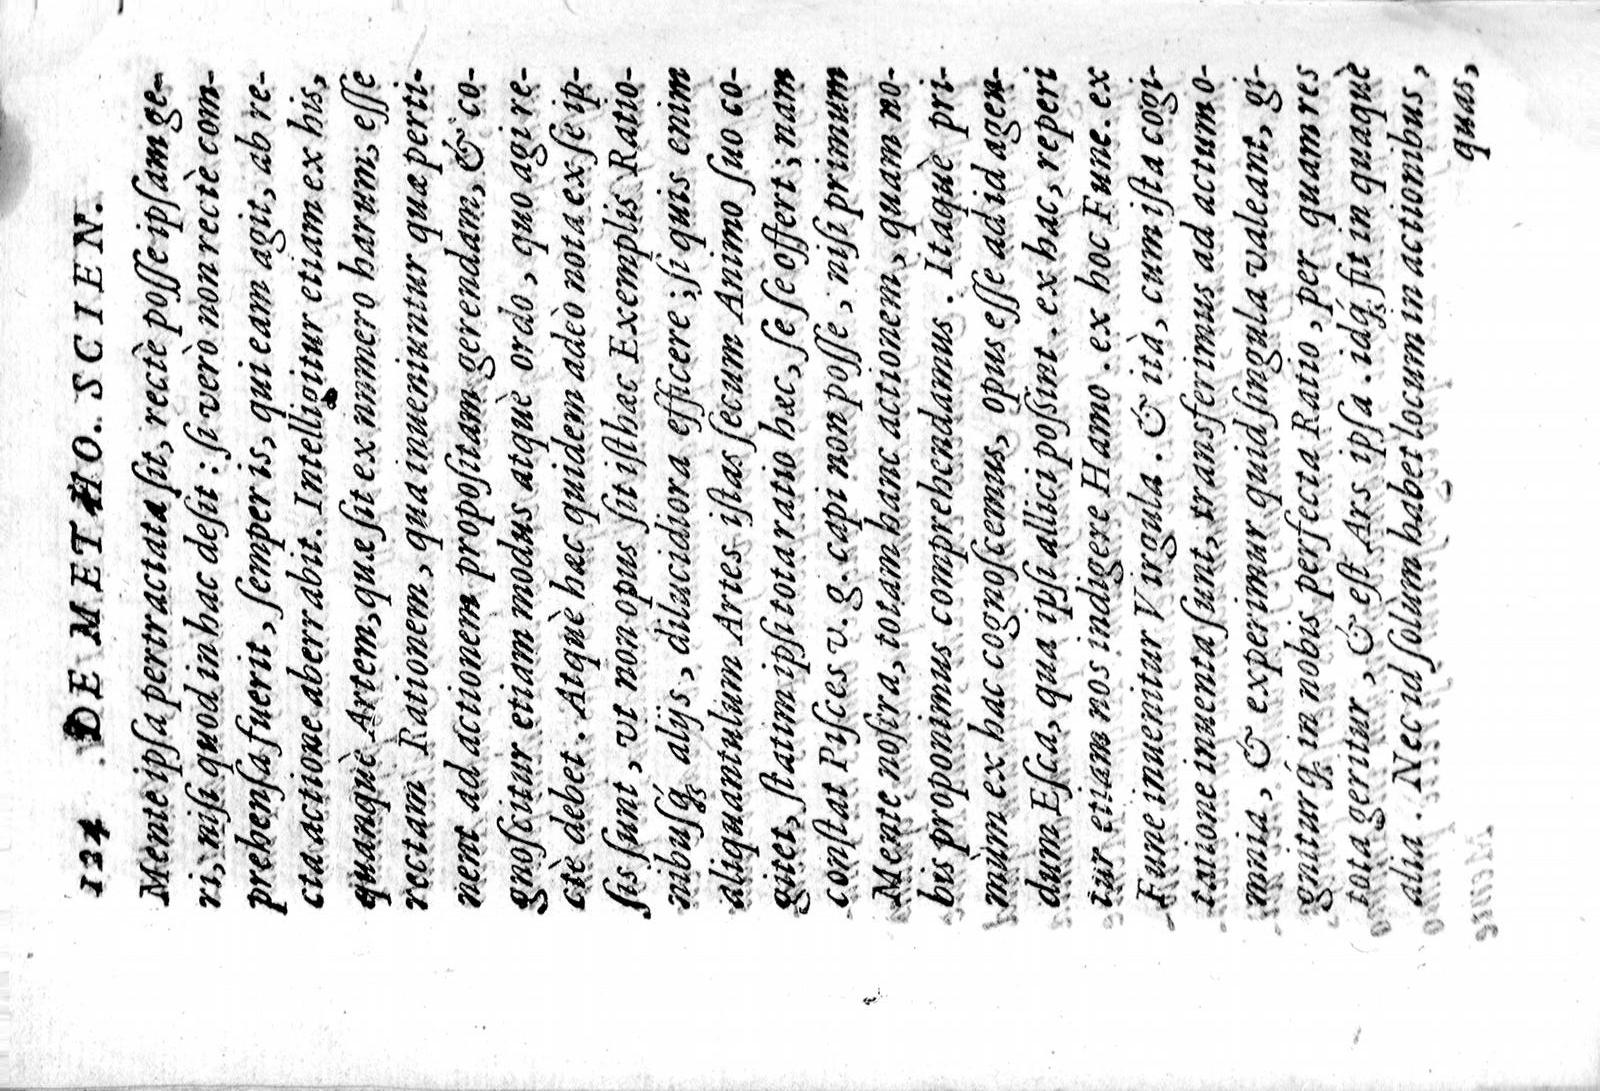 124 DE METHO. SCIEN.
Mente ipſa pertractata ſit, rectè poſſe ipſam ge-
ri, niſi quod in hac deſit: ſi verò non rectè com-
prehenſa fuerit, ſemper is, qui eam agit, ab re-
cta actione aberrabit. Intelligitur etiam ex his,
quanquè Artem, quæ ſit ex numero harum, eſſe
rectam Rationem, qua inueniuntur quæ perti-
nent ad actionem propoſitam gerendam, & co-
gnoſcitur etiam modus atquè ordo, quo agi re-
ctè debet. Atquè hæc quidem adeò nota ex ſe ip-
ſis ſunt, vt non opus ſit iſthæc Exemplis Ratio-
nibuſq́; alijs, dilucidiora efficere; ſi quis enim
aliquantulum Artes iſtas ſecum Animo ſuo co-
gitet, ſtatim ipſi tota ratio hæc, ſe ſe offert; nam
conſtat Piſces v. g. capi non poſſe, niſi primum
Mente noſtra, totam hanc actionem, quam no-
bis proponimus comprehendamus. Itaquè pri-
mùm ex hac cognoſcemus, opus eſſe ad id agen-
dum Eſca, qua ipſi allici poſſint. ex hac, reperi
tur etiam nos indigere Hamo. ex hoc Fune. ex
Fune inuenitur Virgula. & ità, cum iſta cogi-
tatione inuenta ſunt, transferimus ad actum o-
mnia, & experimur quid ſingula valeant, gi-
gniturq́; in nobis perfecta Ratio, per quam res
tota geritur, & eſt Ars ipſa. idq́; fit in quaquè
alia. Nec id ſolùm habet locum in actionibus,
quas,